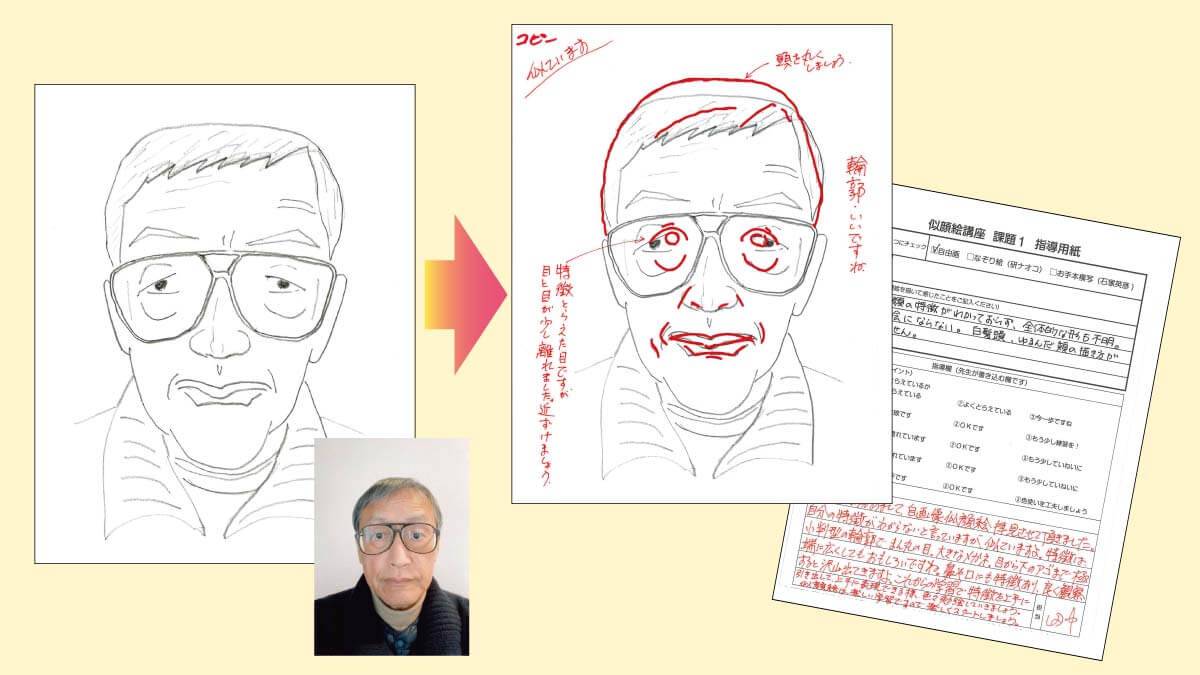 コピー
似ています
頭を丸く
しましょう。
輪郭・いいですね
特徴とらえた目ですが
目と目が少し離れました。近ずけましょう。
似顔絵講座 課題1 指導用紙
つにチェック ☑自由画 □なぞり絵（研ナオコ） □お手本模写（石塚英彦）
を描いて感じたことをご記入ください）
顔の特徴がわかっておらず、全体的な形も不明。
にならない。白髪頭、ゆるんだ頬の描き方が
せん。
指導欄（先生が書き込む欄です）
イント）
らえているか
らえている ②よくとらえている ③今一歩ですね
線です ②OKです ③もう少し練習を！
れています ②OKです ③もう少していねいに
れています ②OKです ③もう少していねいに
です ②OKです ③色使いを工夫しましょう
自画像似顔絵、拝見させて頂きました。
自分の特徴がわからないと言っていますが、似ていますよ。特徴は
小判型の輪郭で、まんだの目、大きなメガネ、目から下のアゴまで極
端に広くしてもおもしろいですね。鼻や口にも特徴有り、良く観察
すると沢山出てきますよ。これからの学習で特徴を上手に
引き出して、上手に表現できる様、色々勉強していきましょう。
似顔絵は、楽しい学習ですので、楽しくスタートしましょう。
担当